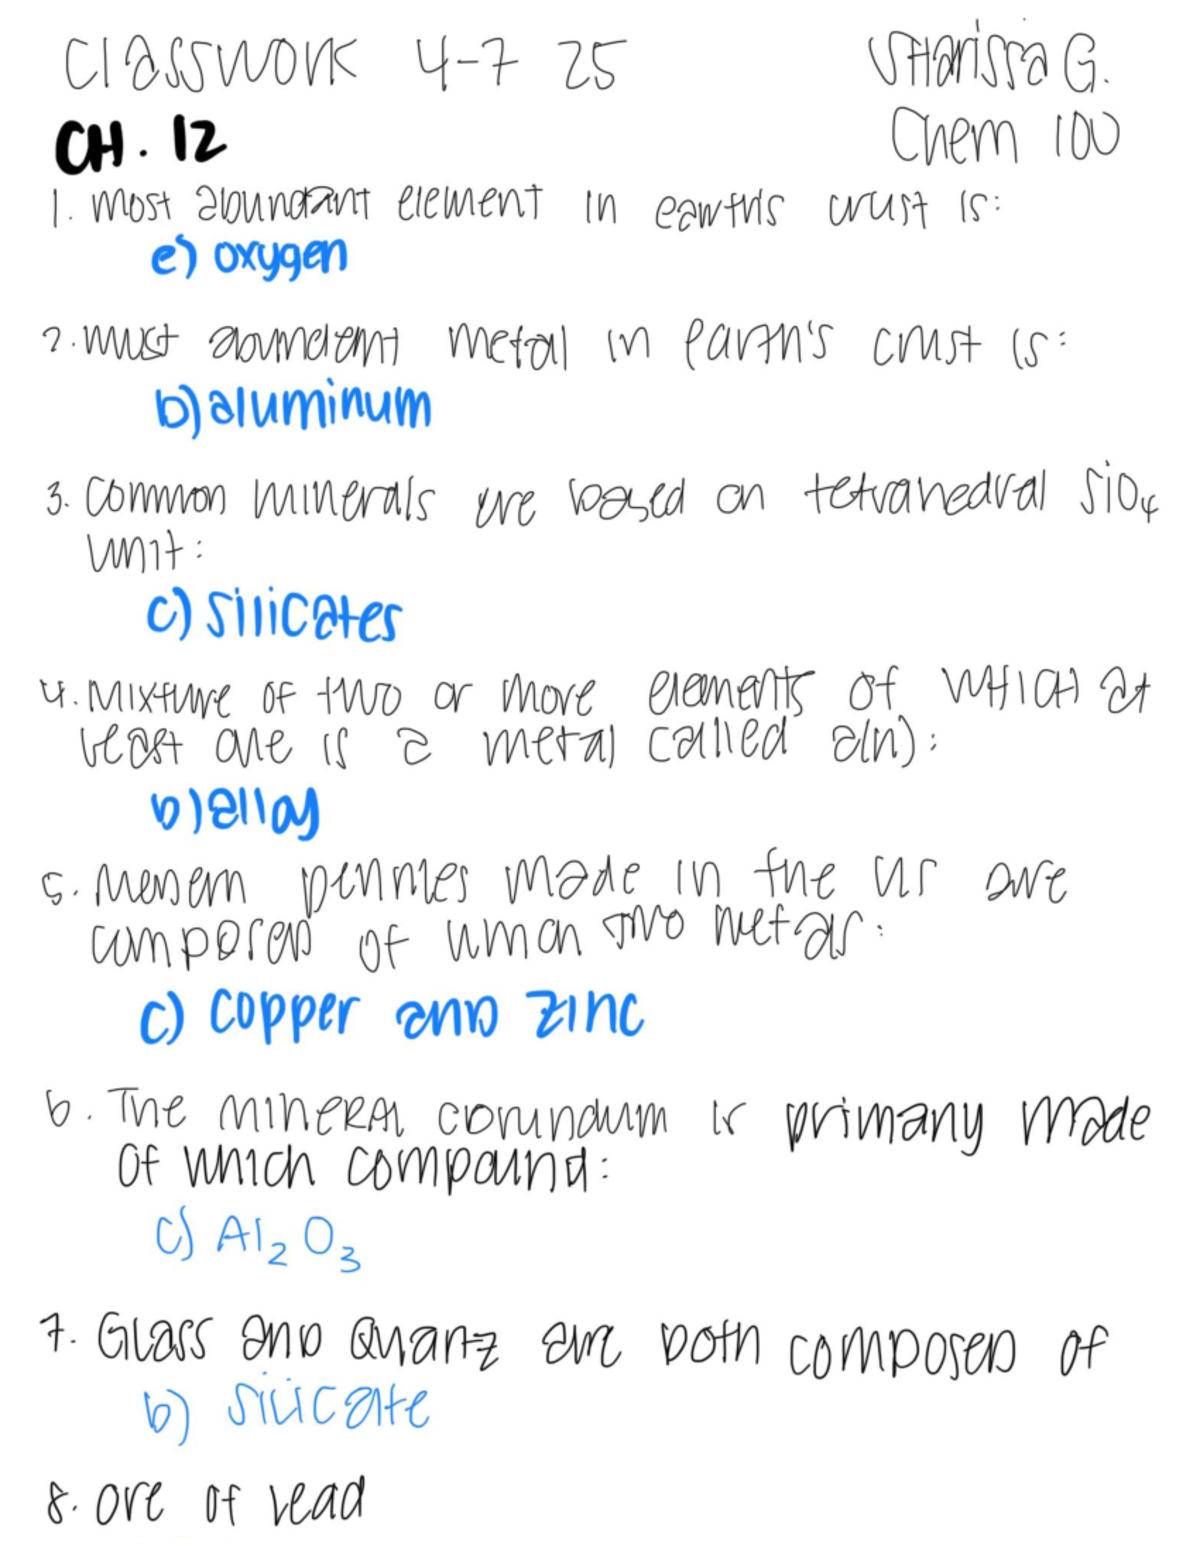 Classwork 4-7 25
Sharissa G.
CH. 12
Chem 100
1. most abundant element in earth's crust is:
e) oxygen
2. most abundant metal in Earth's crust is:
b) aluminum
3. common minerals are based on tetrahedral SiO₄
unit:
c) silicates
4. Mixture of two or more elements of which at
least one is a metal called a(n):
b) alloy
5. Modern pennies made in the US are
composed of which two metals:
c) copper and zinc
6. The mineral corundum is primary made
of which compound:
c) Al₂O₃
7. Glass and Quartz are both composed of
b) silicate
8. ore of lead